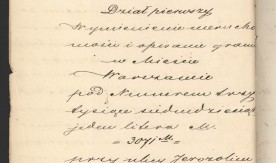 Dział pierwszy
Wymienienie nierucho
mości i opisanie granic
w Mieście
Warszawie
pod Numerem trzy
tysiące siedmdziesiąt
jeden litera M.
= 3071 M. =
przy ulicy Jerozolim